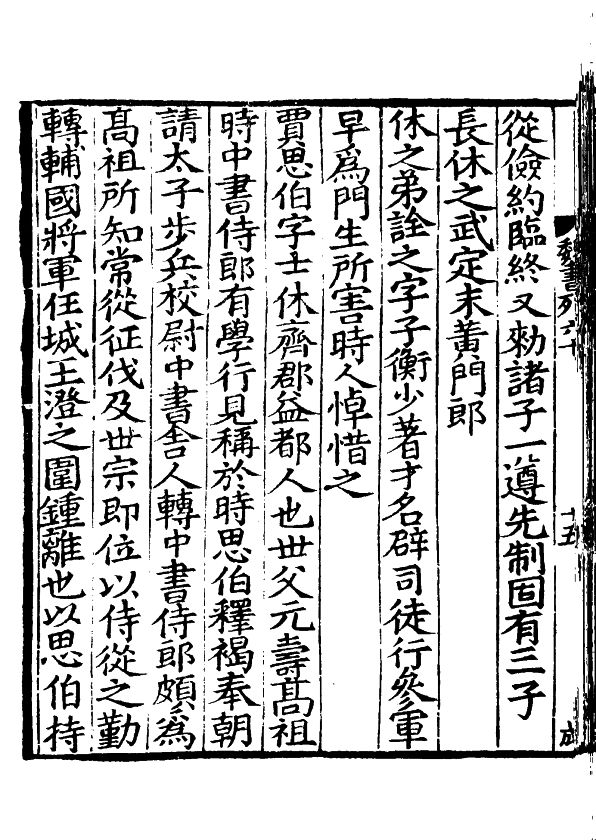 從儉約臨終又勑諸子一遵先制固有三子
長休之武定末黃門郎
休之弟詮之字子衡少著才名辟司徒行參軍
早爲門生所害時人悼惜之
賈思伯字士休齊郡益都人也世父元壽高祖
時中書侍郎有學行見稱於時思伯釋褐奉朝
請太子步兵校尉中書舍人轉中書侍郎頗爲
高祖所知常從征伐及世宗即位以侍從之勤
轉輔國將軍任城王澄之圍鍾離也以思伯持
魏書列六十
十五